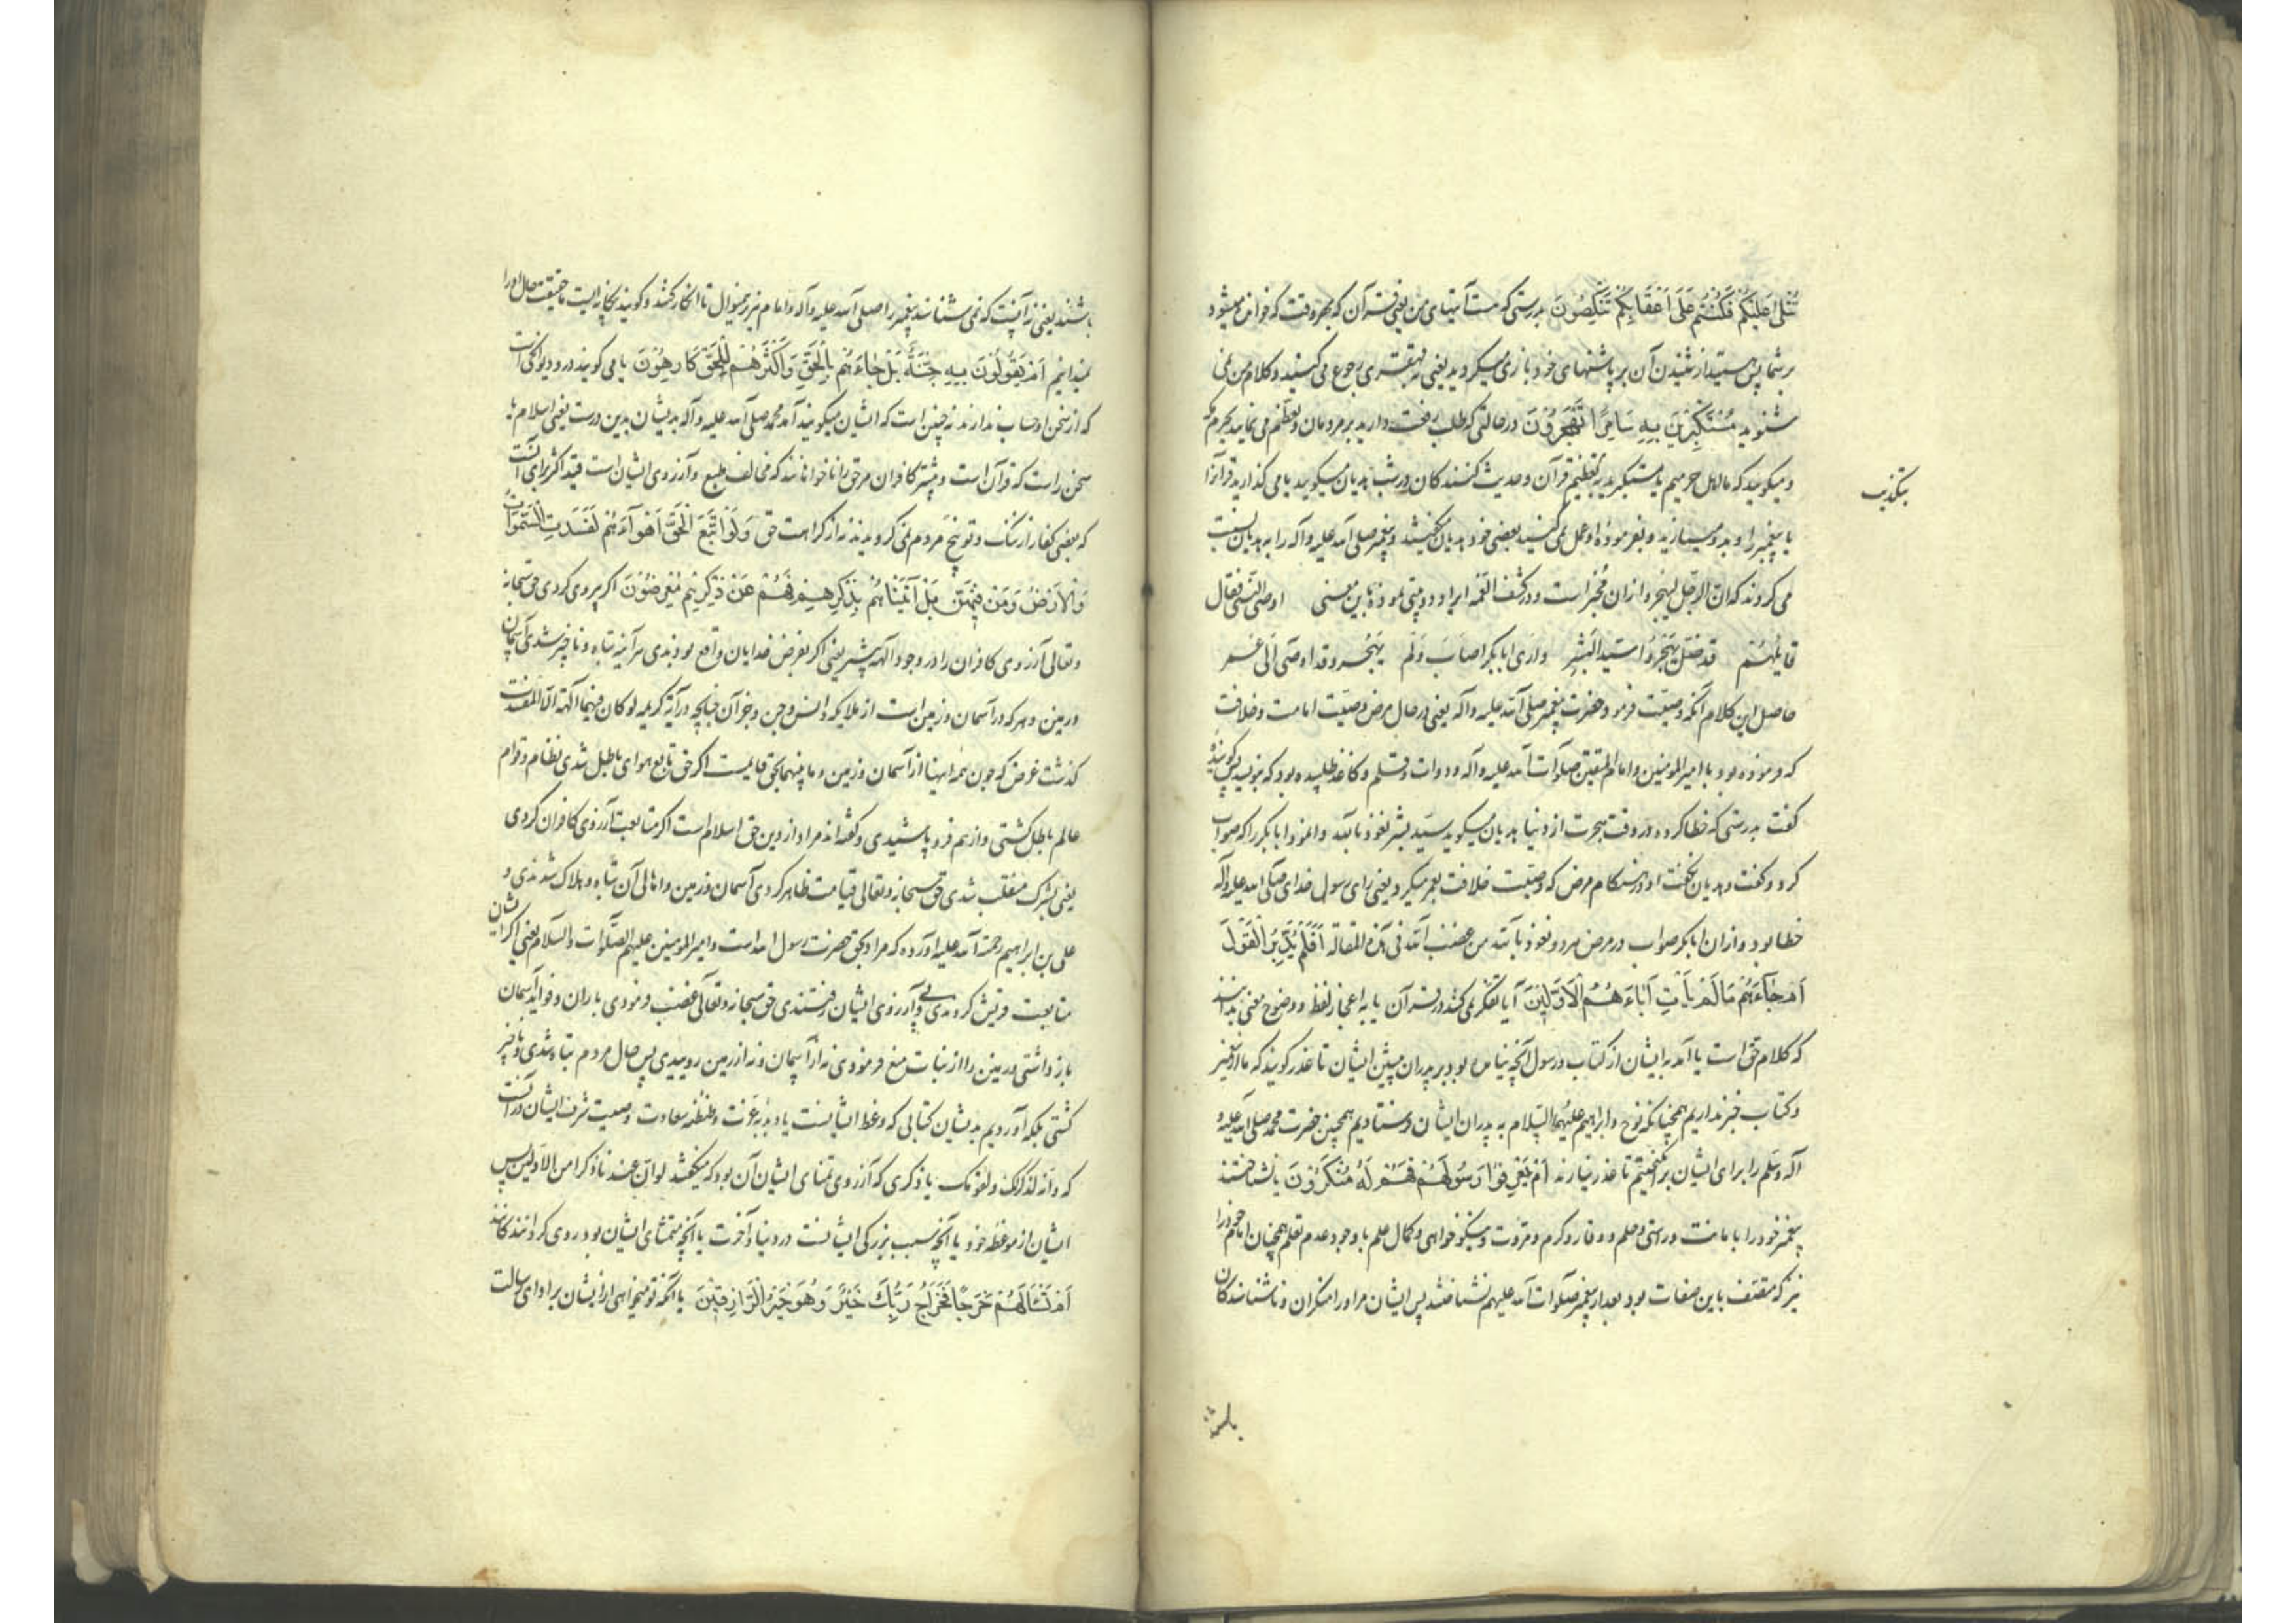 تُتْلَىٰ عَلَيْكُمْ فَكُنْتُمْ عَلَىٰ اَعْقَابِكُمْ تَنْكِصُونَ بدرستی که هست آیتهای من یعنی قرآن که بهر وقت که خوانده میشود
بر شما پس هستید از شنیدن آن بر پاشنهای خود باز میگردید یعنی بقهقری رجوع می کنید و کلام من نمی
شنوید مُسْتَكْبِرِينَ بِهِ سَامِرًا تَهْجُرُونَ در حالتی که طلب رفعت دارید بر مردمان و تعظم می نمایید بحرم مکه
و میکویید که ما اهل حرمیم یا مستکبرید بتعظیم قرآن و حدیث کنندکان در شب هذیان میکویید یا می کذارید قرآن را
بتکذیب
یا پیغمبر را و بدو نمیسازید و بفرمودهٔ او عمل نمی کنید بعضی خود هذیان میکفتند و پیغمبر صلی الله علیه وآله را به هذیان نسبت
می کردند که ان الرجل لیهجر و از ان مخبر است و در کشف الغمه ایراد دو بیتی نموده باین معنی اوصی النبی فقال
قایلهم قد ضل یهجر سید البشر واری ابابکر اصاب ولم یهجر وقد اوصی الی عمر
حاصل این کلام آنکه وصیت فرمود حضرت پیغمبر صلی الله علیه وآله یعنی در حال مرض وصیت امامت و خلافت
که فرموده بود با امیرالمومنین و امام المتقین صلوات الله علیه وآله و دوات و قلم و کاغذ طلبیده بود که بنویسد پس کوینده
کفت بدرستی که خطا کرده در وقت هجرت از دنیا هذیان میکوید سید بشر نعوذ بالله و ابابکر را که صواب
کرد و کفت و هذیان نکفت او در هنکام مرض که وصیت خلافت بعمر میکرد یعنی رای رسول خدای صلی الله علیه وآله
خطا بود و از ان ابابکر صواب در مرض مرد و نعوذ بالله من غضب الله فی هذه المقاله اَفَلَمْ يَدَّبَّرُوا الْقَوْلَ
اَمْ جَاۤءَهُمْ مَا لَمْ يَأْتِ اٰبَاۤءَهُمُ الْاَوَّلِينَ آیا تفکر نمی کنند در قرآن یا به اعجاز لفظ و وضوح معنی بدانند
که کلام حق است یا آمد به ایشان از کتاب و رسول آنچه نیامده بود بر پدران پیشین ایشان تا عذر کویند که ما از پیغمبر
و کتاب خبر نداریم همچنانکه نوح و ابراهیم علیهما السلام به پدران ایشان فرستادیم همچنین حضرت محمد صلی الله علیه و
آله وسلم را برای ایشان برانکیختیم تا عذر نیارند اَمْ لَمْ يَعْرِفُوا رَسُولَهُمْ فَهُمْ لَهُ مُنْكِرُونَ یا نشناختند
پیغمبر خود را با مانت و راستی و حلم و وقار و کرم و مروت و نیکو خواهی و کمال علم با وجود عدم تعلم همچنان امام خود را
نیز که متصف باین صفات بود بعد از پیغمبر صلوات الله علیهم نشناختند پس ایشان مر او را منکران و ناشناسندکان
باشند
باشند یعنی نه آنست که نمی شناسند پیغمبر را صلی الله علیه وآله و امام نیز بر همین منوال تا انکار کنند و کویند بیکانه ایست ما حقیقت حال او را
نمیدانیم اَمْ يَقُولُونَ بِهِ جِنَّةٌ بَلْ جَاۤءَهُمْ بِالْحَقِّ وَاَكْثَرُهُمْ لِلْحَقِّ كَارِهُونَ یا می کویند در و دیوانکی است
که از سخن او حساب ندارند نه چنین است که ایشان میکویند آمد محمد صلی الله علیه وآله بدیشان بدین درست یعنی اسلام یا
سخن راست که قرآن است و بیشتر کافران مر حق را ناخواهانند که مخالف طبع و آرزوی ایشان است قید اکثر برای آنست
که بعضی کفار از ننک و توبیخ مردم نمی کرویدند نه از کراهت حق وَلَوِ اتَّبَعَ الْحَقُّ اَهْوَاۤءَهُمْ لَفَسَدَتِ السَّمٰوَاتُ
وَالْاَرْضُ وَمَنْ فِيهِنَّ بَلْ اَتَيْنَاهُمْ بِذِكْرِهِمْ فَهُمْ عَنْ ذِكْرِهِمْ مُعْرِضُونَ اکر پیروی کردی حق سبحانه
و تعالی آرزوی کافران را در وجود آلهه یعنی اکر بفرض خدایان واقع بودندی هر آینه تباه و ناچیز شدی آسمان
و زمین و هر که در آسمان و زمین است از ملایکه و انس و جن و جز آن چنانچه در آیهٔ کریمه لو کان فیهما آلهة الا الله لفسدتا
کذشت غرض که چون همه اینها از آسمان و زمین و ما بینهما بحق قایمست اکر حق تابع هوای باطل شدی نظام و قوام
عالم باطل کشتی و از هم فرو پاشیدی و کفته اند مراد از دین حق اسلام است اکر متابعت آرزوی کافران کردی
یعنی بشرک منقلب شدی حق سبحانه و تعالی قیامت ظاهر کردی آسمان و زمین و اهالی آن تباه و هلاک شدندی و
علی بن ابراهیم رحمة الله علیه آورده که مراد بحق حضرت رسول الله است و امیرالمومنین علیهم الصلوات والسلام یعنی اکر ایشان
متابعت قریش کردندی و پی آرزوی ایشان رفتندی حق سبحانه و تعالی غضب فرمودی باران و فواید آسمان
باز داشتی و زمین را از نبات منع فرمودی نه از آسمان و نه از زمین روییدی پس حال مردم تباه شدی و ناچیز
کشتی بلکه آوردیم بدیشان کتابی که وعظ ایشانست یا دبدبهٔ عزت و طنطنهٔ سعادت و صیت شرف ایشان در آنست
که وانه لذکر لک ولقومک یا ذکری که آرزوی تمنای ایشان آن بود که میکفتند لو ان عندنا ذکرا من الاولین پس
ایشان از موعظهٔ خود یا آنچه سبب بزرکی ایشانست در دنیا و آخرت یا آنچه متمنای ایشان بود روی کردانندکانند
اَمْ تَسْأَلُهُمْ خَرْجًا فَخَرَاجُ رَبِّكَ خَيْرٌ وَهُوَ خَيْرُ الرَّازِقِينَ یا آنکه تو میخواهی از ایشان بر ادای رسالت